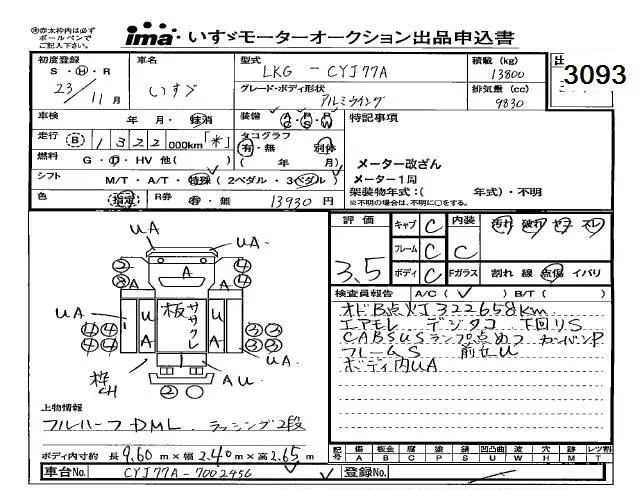 ㊟赤太枠内は必ず
ボールペンで
ご記入下さい。
ima・いすゞモーターオークション出品申込書
初度登録
S・H・R
23年11月
車名
いすゞ
型式
LKG-CYJ77A
グレード・ボディ形状
アルミウイング
積載 (kg)
13800
排気量 (cc)
9830
3093
車検 年 月・抹消
装備 A/C P/S P/W
特記事項
走行 B 1322 000km「米」
タコグラフ
有・無 別体
( 年 月)
メーター改ざん
メーター1周
架装物年式:( 年式)・不明
※不明の場合は、不明に○をする。
燃料 G・D・HV 他( )
シフト M/T・A/T・特殊(2ペダル・3ペダル)
色 (指定) R券 有・無 13930 円
評価 3.5
キャブ C 内装 C 汚れ 破れ ヤケ スレ
フレーム C
ボディ C Fガラス 割れ 線 点傷 イバリ
検査員報告 A/C( ✓ ) B/T( )
オドB点灯322658km
エアモレ デジタコ 下回りS
CABSUSランプ点めつ カーバンP
フレームS 前セU
ボディ内UA
UA
UA
2 4
8 4
A
A
A
UA
板ササクレ
U
A
U
A
4 4
4 4
3 3
3 3
UA
枠CH
AU
2
上物情報
フルハーフDML. ラッシング2段
ボディ内寸約 長 9.60 m×幅 2.40 m×高 2.65 m
記号 傷 A 板金 B 腐 C 補 P 錆 S 凹凸曲 U 波 W 穴 H 跡 M レツ割 T
車台No. CYJ77A-7002456
登録No.